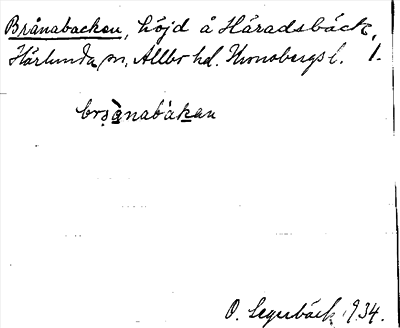 Brånabacken, höjd å Häradsbäck,
Härlunda sn, Allbo hd. Kronobergs l. 1.
brånabákan
O. Segerbäck 1934.